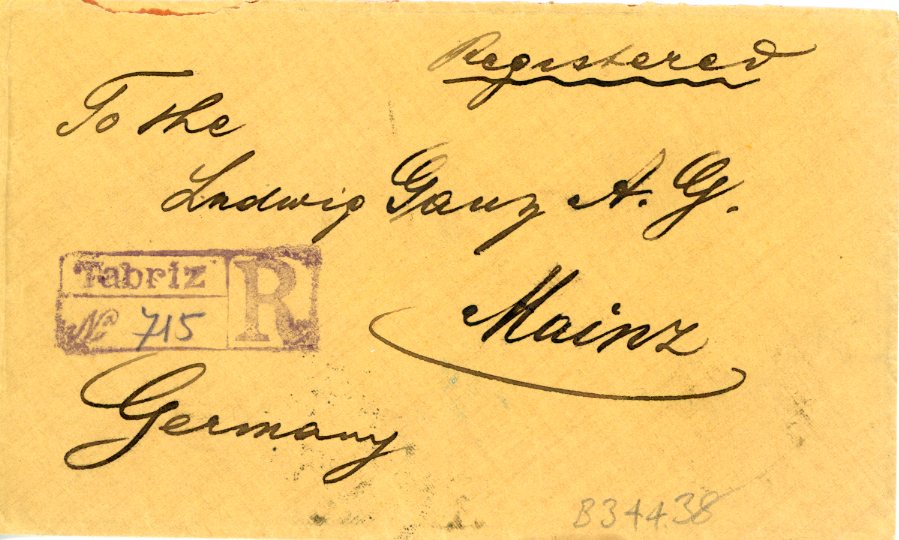 Registered
To the
Ludwig Ganz A. G.
Tabriz R
No 715
Mainz
Germany
B34438